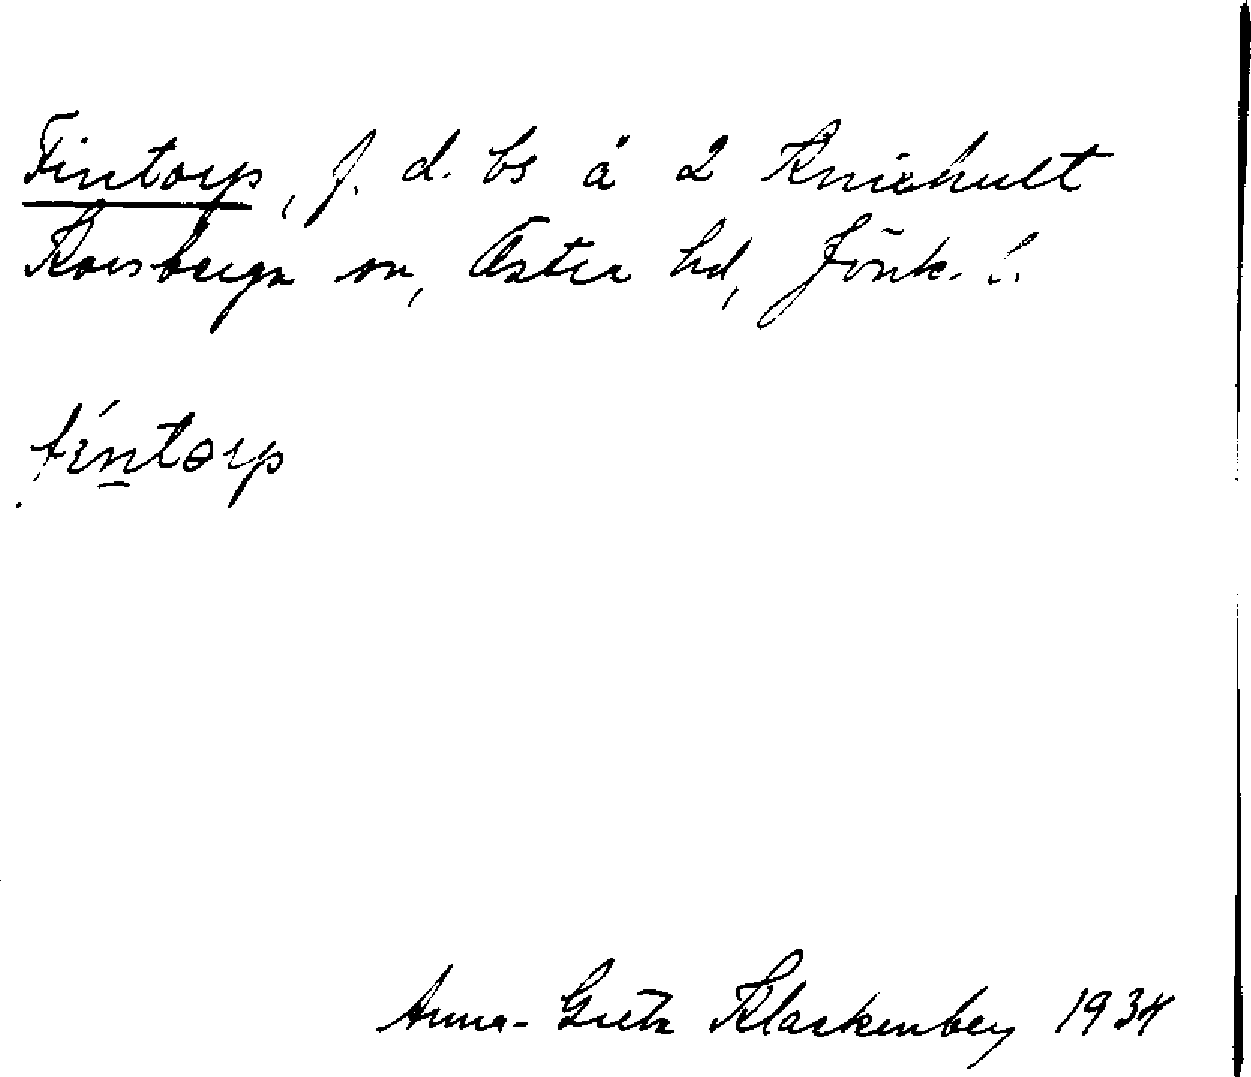 Fintorp, f. d. bs å 2 Knickhult
Korsberga sn, Öster hd, Jönk. l.
fintorp
Anna-Greta Klackenberg 1934